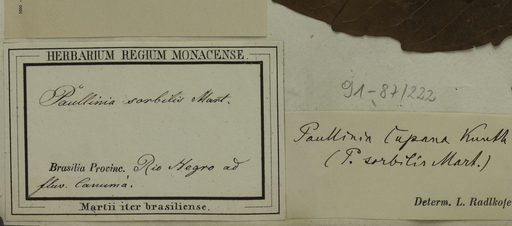 HERBARIUM REGIUM MONACENSE.
Paullinia sorbilis Mart.
Brasilia Provinc. Rio Negro ad
fluv. Canumá.
Martii iter brasiliense.
91-87/222
Paullinia Cupana Kunth
(P. sorbilis Mart.)
Determ. L. Radlkofe